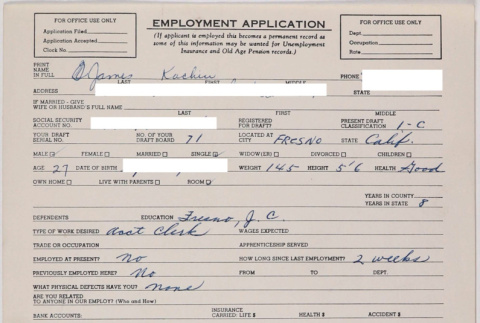 FOR OFFICE USE ONLY
Application Filed
Application Accepted
Clock No.
EMPLOYMENT APPLICATION
(If applicant is employed this becomes a permanent record as
some of this information may be wanted for Unemployment
Insurance and Old Age Pension records.)
FOR OFFICE USE ONLY
Dept.
Occupation
Rate
PRINT
NAME
IN FULL James PHONE
LAST FIRST MIDDLE
ADDRESS STATE
IF MARRIED - GIVE
WIFE OR HUSBAND'S FULL NAME
LAST FIRST MIDDLE
SOCIAL SECURITY
ACCOUNT NO. REGISTERED
FOR DRAFT? PRESENT DRAFT
CLASSIFICATION 1-C
YOUR DRAFT
SERIAL NO. NO. OF YOUR
DRAFT BOARD 71 LOCATED AT
CITY FRESNO STATE Calif.
MALE ✓ FEMALE MARRIED SINGLE ✓ WIDOW(ER) DIVORCED CHILDREN
AGE 27 DATE OF BIRTH WEIGHT 145 HEIGHT 5'6 HEALTH Good
OWN HOME LIVE WITH PARENTS ROOM ✓
YEARS IN COUNTY
YEARS IN STATE 8
DEPENDENTS EDUCATION Fresno, J. C.
TYPE OF WORK DESIRED Acct Clerk WAGES EXPECTED
TRADE OR OCCUPATION APPRENTICESHIP SERVED
EMPLOYED AT PRESENT? No HOW LONG SINCE LAST EMPLOYMENT? 2 weeks
PREVIOUSLY EMPLOYED HERE? No FROM TO DEPT.
WHAT PHYSICAL DEFECTS HAVE YOU? None
ARE YOU RELATED
TO ANYONE IN OUR EMPLOY? (Who and How)
BANK ACCOUNTS: INSURANCE
CARRIED: LIFE $ HEALTH $ ACCIDENT $